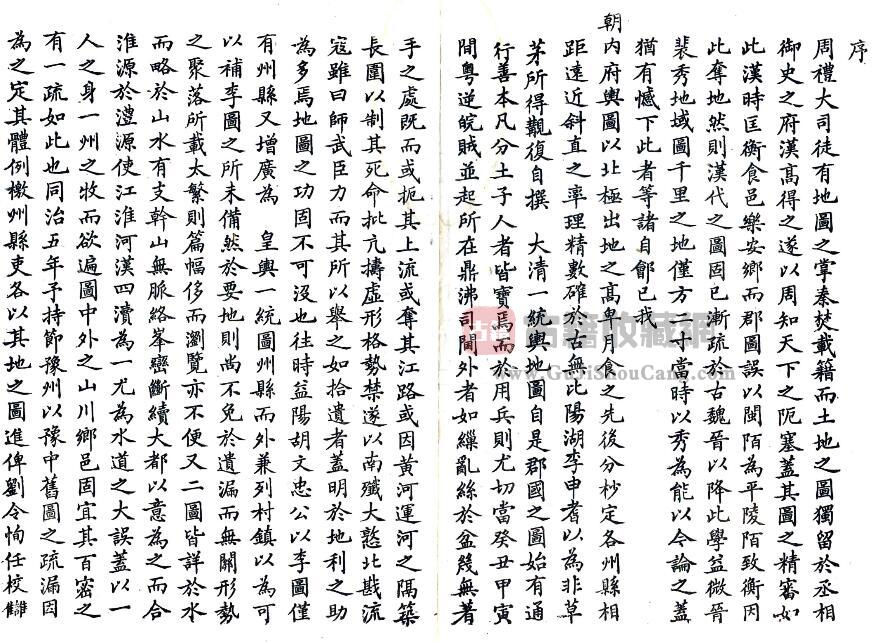 序
周禮大司徒有地圖之掌秦焚載籍而土地之圖獨留於丞相
御史之府漢髙得之遂以周知天下之阨塞蓋其圖之精審如
此漢時匡衡食邑樂安鄉而郡圖誤以閩陌為平陵陌致衡因
此奪地然則漢代之圖固已漸疏於古魏晉以降此學益微晉
裴秀地域圖千里之地僅方二寸當時以秀為能以今論之蓋
猶有憾下此者等諸自鄶已我
朝內府輿圖以北極出地之髙卑月食之先後分杪定各州縣相
距遠近斜直之率理精數確於古無比陽湖李申耆以為非草
茅所得觀復自撰 大清一統輿地圖自是郡國之圖始有通
行善本凡分土子人者皆寶焉而於用兵則尤切當癸丑甲寅
間粵逆皖賊並起所在鼎沸司閫外者如繅亂絲於盆幾無著
手之處既而或扼其上流或奪其江路或因黃河運河之隔築
長圍以制其死命批亢擣虛形格勢禁遂以南殲大憝北戡流
寇雖曰師武臣力而其所以舉之如拾遺者蓋明於地利之助
為多焉地圖之功固不可沒也往時益陽胡文忠公以李圖僅
有州縣又增廣為 皇輿一統圖州縣而外兼列村鎮以為可
以補李圖之所未備然於要地則尚不免於遺漏而無關形勢
之聚落所載太繁則篇幅侈而瀏覽亦不便又二圖皆詳於水
而略於山水有支幹山無脈絡峯巒斷續大都以意為之而合
淮源於澧源使江淮河漢四瀆為一尤為水道之大誤蓋以一
人之身一州之牧而欲遍圖中外之山川鄉邑固宜其百密之
有一疏如此也同治五年予持節豫州以豫中舊圖之疏漏因
為之定其體例檄州縣吏各以其地之圖進俾劉令恂任校讎
古籍收藏網
www.GuJiShouCang.com